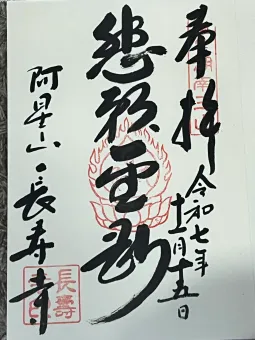 奉拝
令和七年
十一月十五日
悲願金剛
阿星山 長寿寺
長壽
寺印